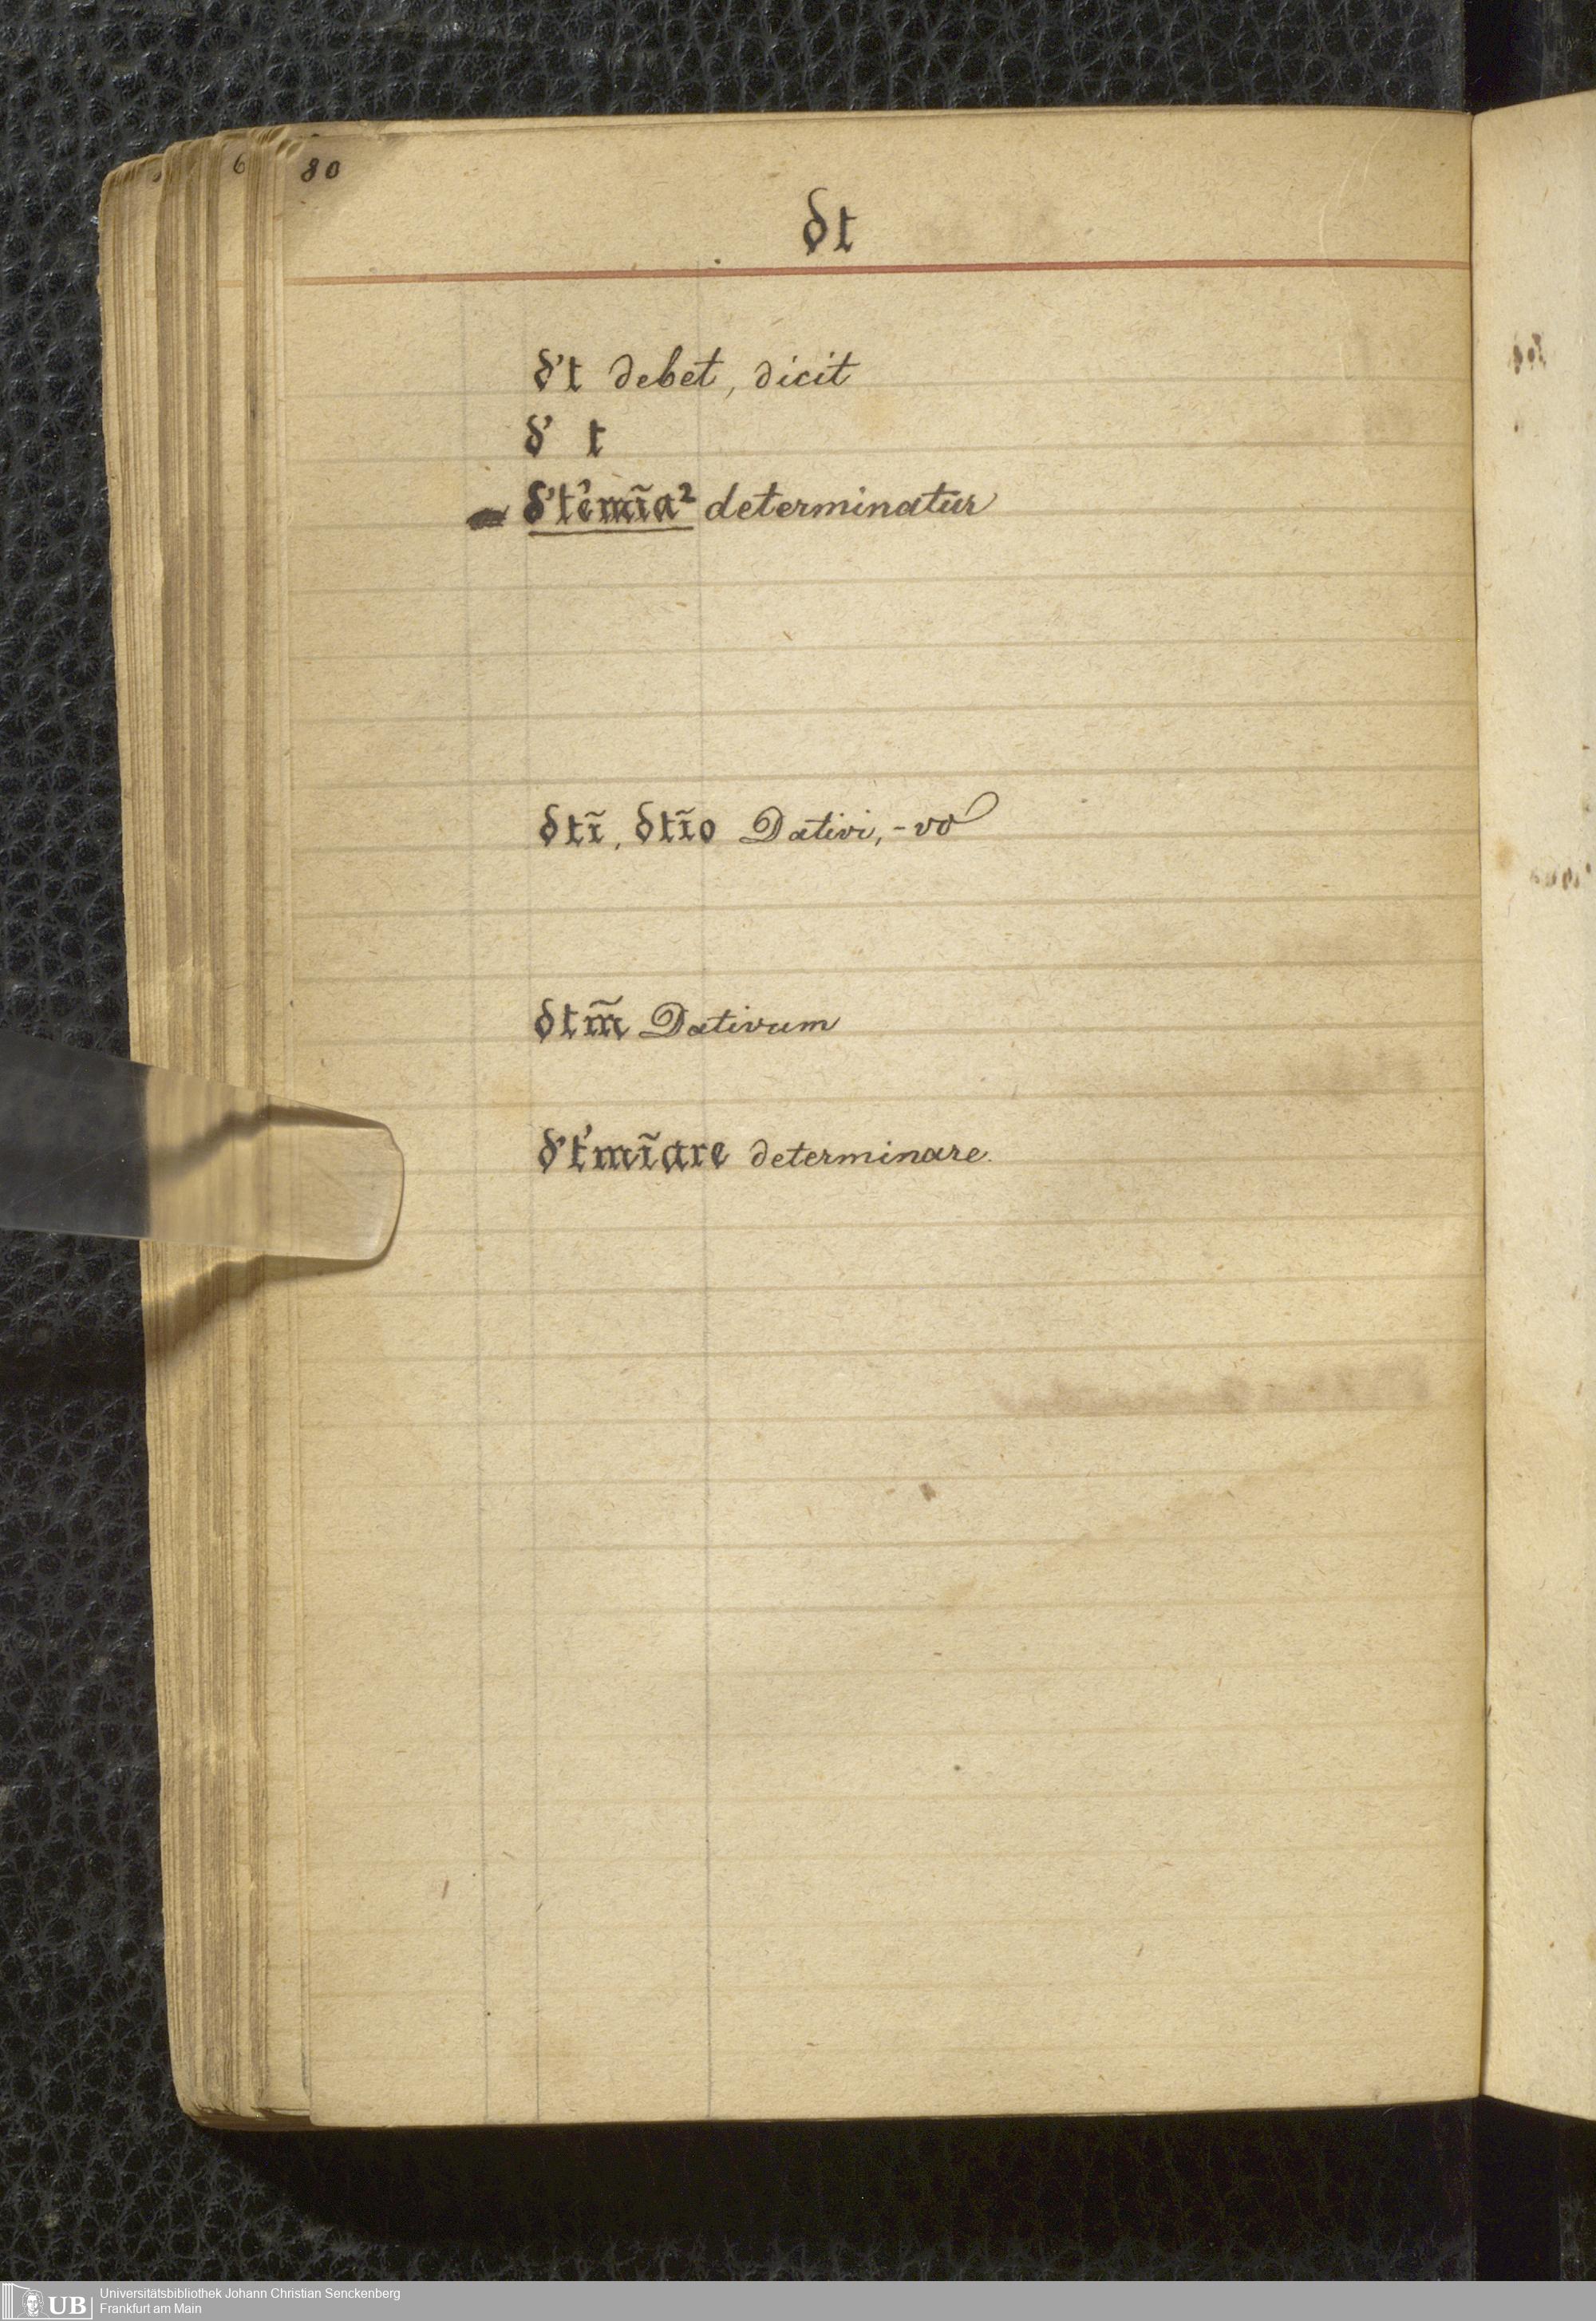 80
dt
d't debet, dicit
d' t
d't'emĩa² determinatur
dtĩ, dtĩo Dativi, -vo
dtm̃ Dativum
d't'mĩare determinare.
UB Universitätsbibliothek Johann Christian Senckenberg
Frankfurt am Main